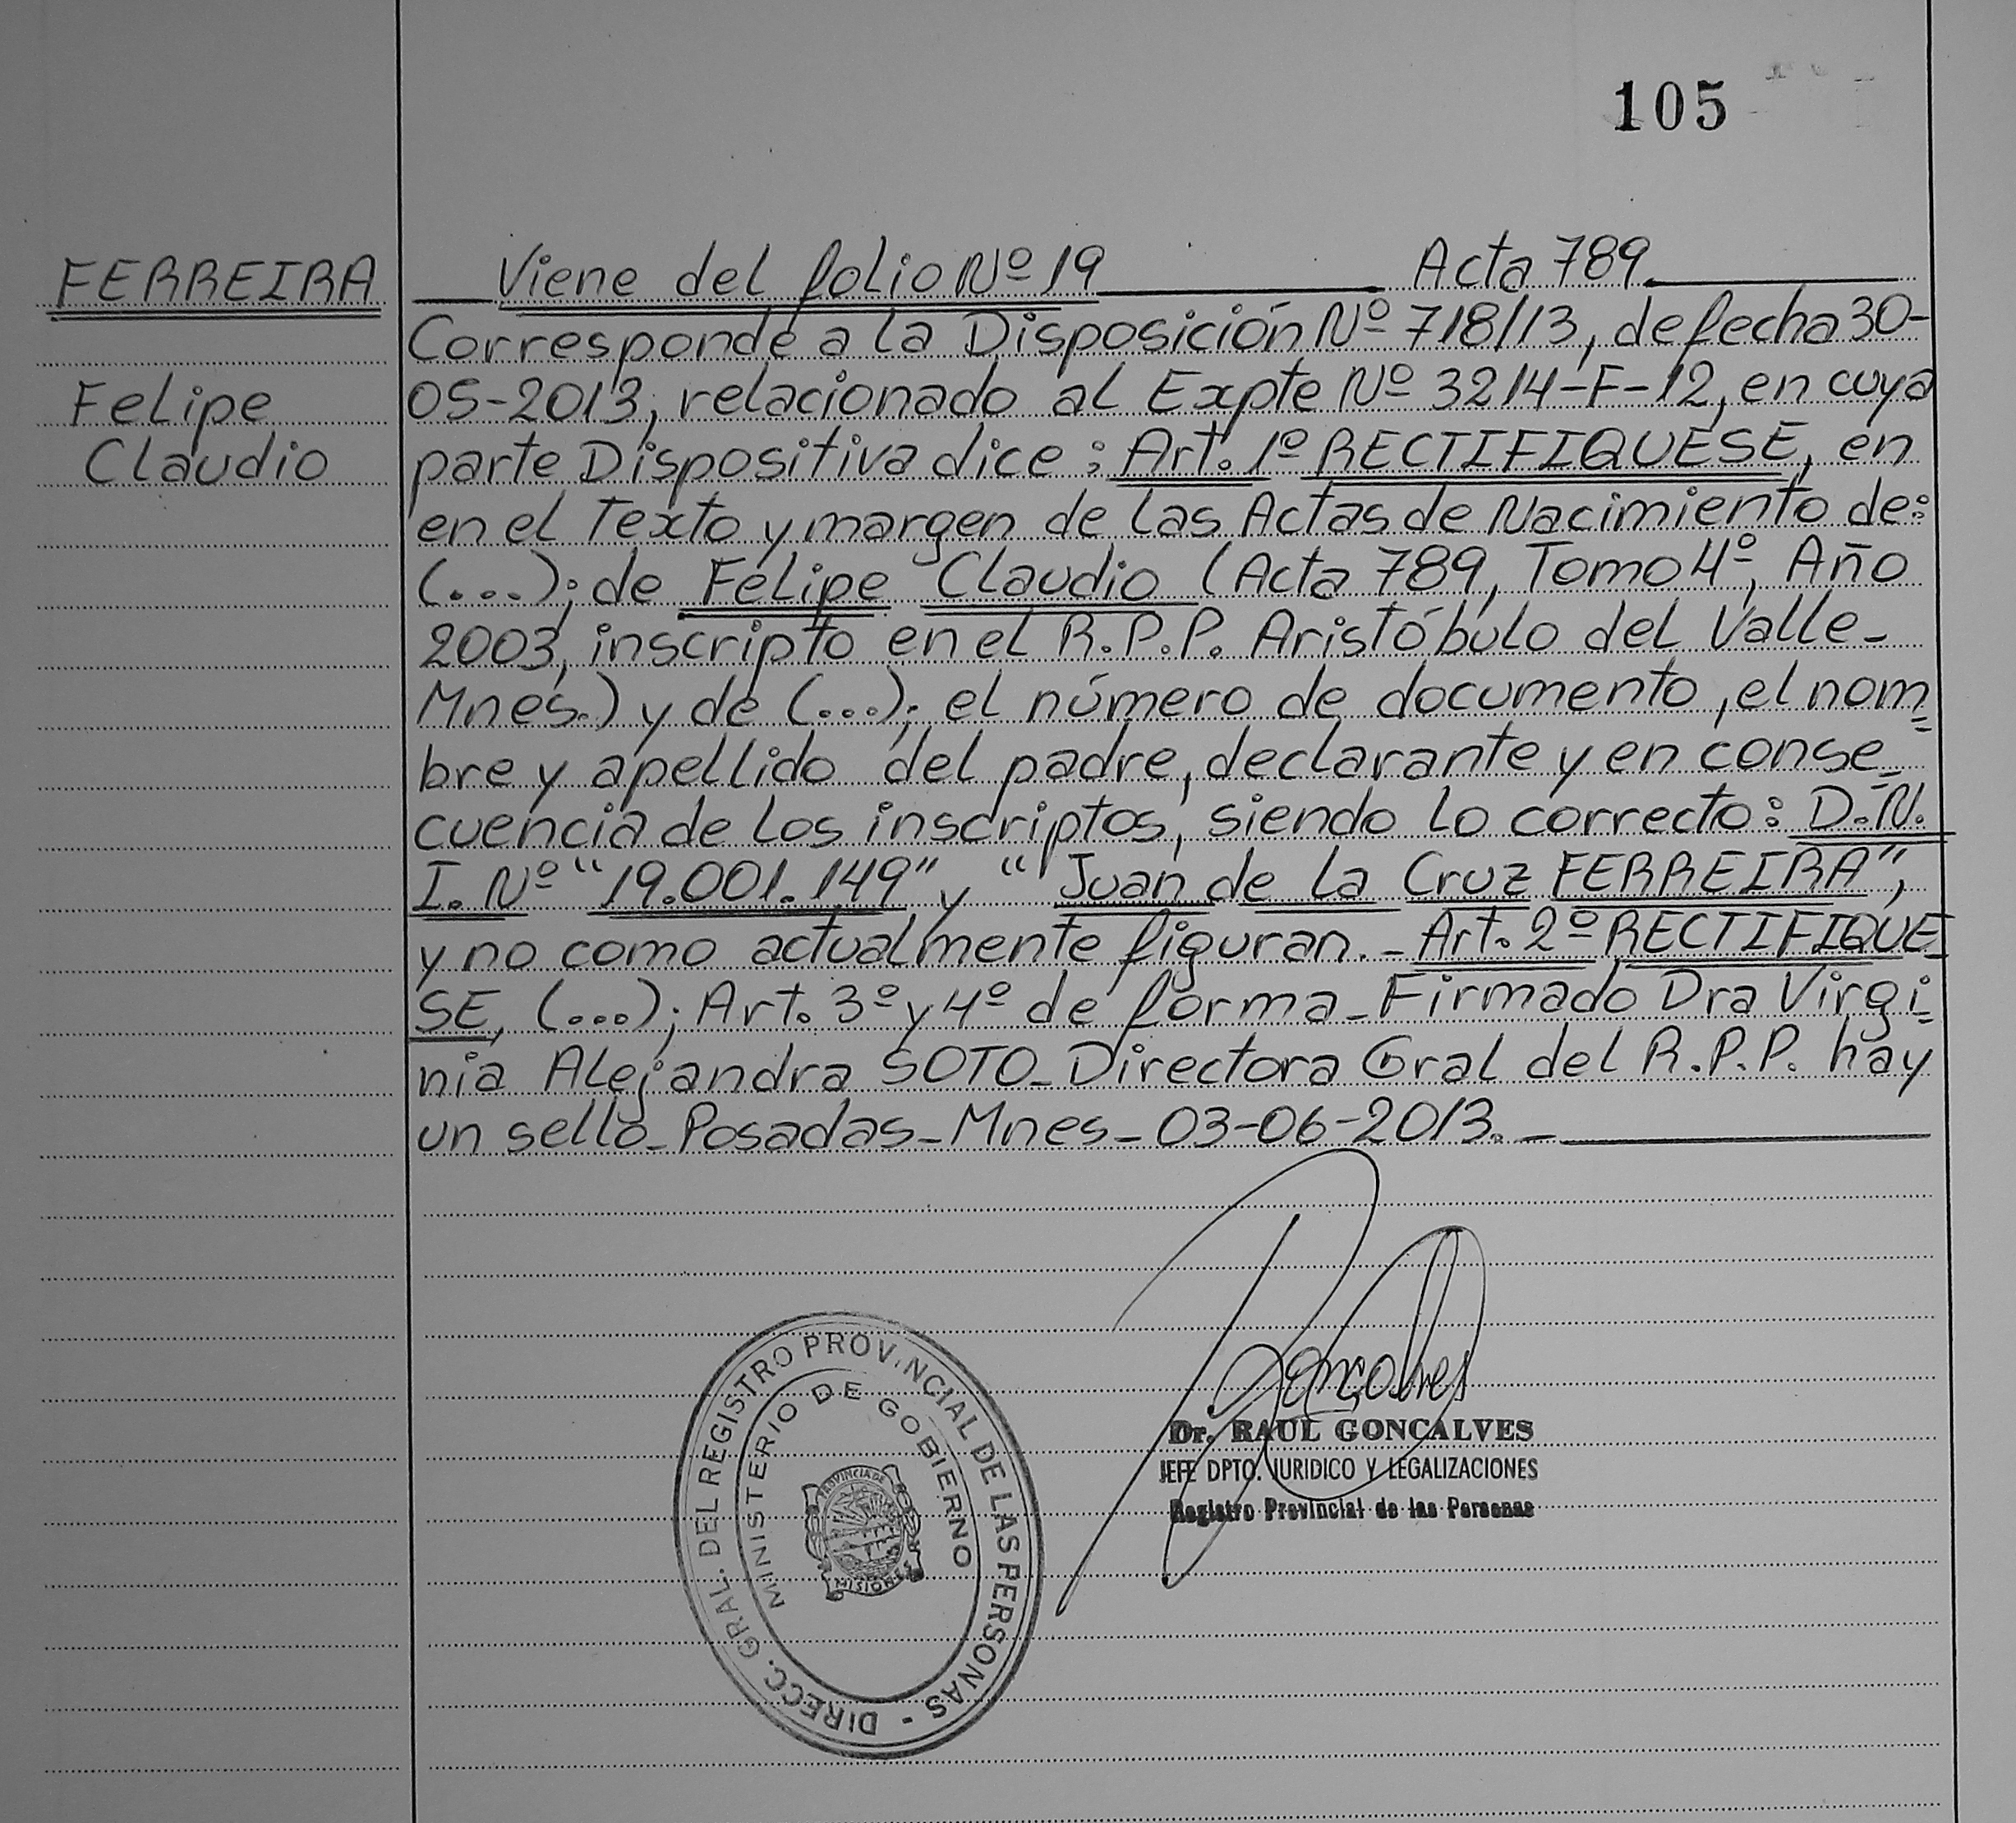 105
FERREIRA
Felipe
Claudio
Viene del folio Nº 19 Acta 789.
Corresponde a la Disposición Nº 718/13, de fecha 30-
05-2013, relacionado al Expte Nº 3214-F-12, en cuya
parte Dispositiva dice: Art. 1º RECTIFIQUESE, en
en el Texto y margen de las Actas de Nacimiento de:
(...); de Felipe Claudio (Acta 789, Tomo 4º, Año
2003, inscripto en el R.P.P. Aristóbulo del Valle-
Mnes.) y de (...); el número de documento, el nom=
bre y apellido del padre, declarante y en conse=
cuencia de los inscriptos, siendo lo correcto: D.N.
I. Nº "19.001.149" y "Juan de la Cruz FERREIRA",
y no como actualmente figuran.- Art. 2º RECTIFIQUE
SE, (...); Art. 3º y 4º de forma- Firmado Dra Virgi=
nia Alejandra SOTO- Directora Gral del R.P.P. hay
un sello- Posadas- Mnes- 03-06-2013.-
DIRECC. GRAL. DEL REGISTRO PROVINCIAL DE LAS PERSONAS -
MINISTERIO DE GOBIERNO
PROVINCIA DE
MISIONES
Goncalves
Dr. RAUL GONCALVES
JEFE DPTO. JURIDICO Y LEGALIZACIONES
Registro Provincial de las Personas